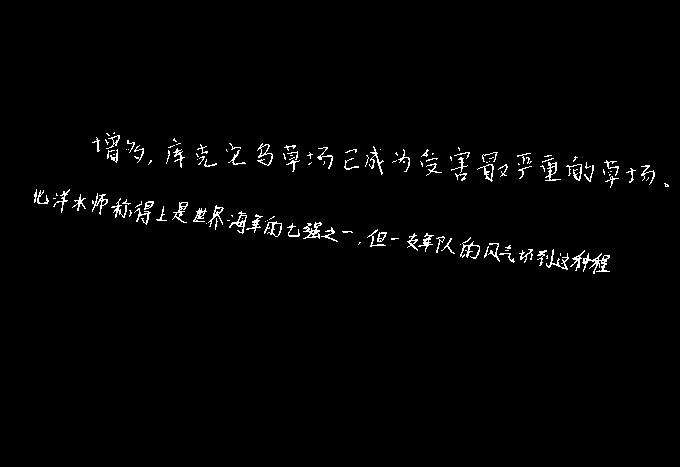 增多,库克它乌草场已成为受害最严重的草场。
北洋水师称得上是世界海军的七强之一,但一支军队的风气坏到这种程